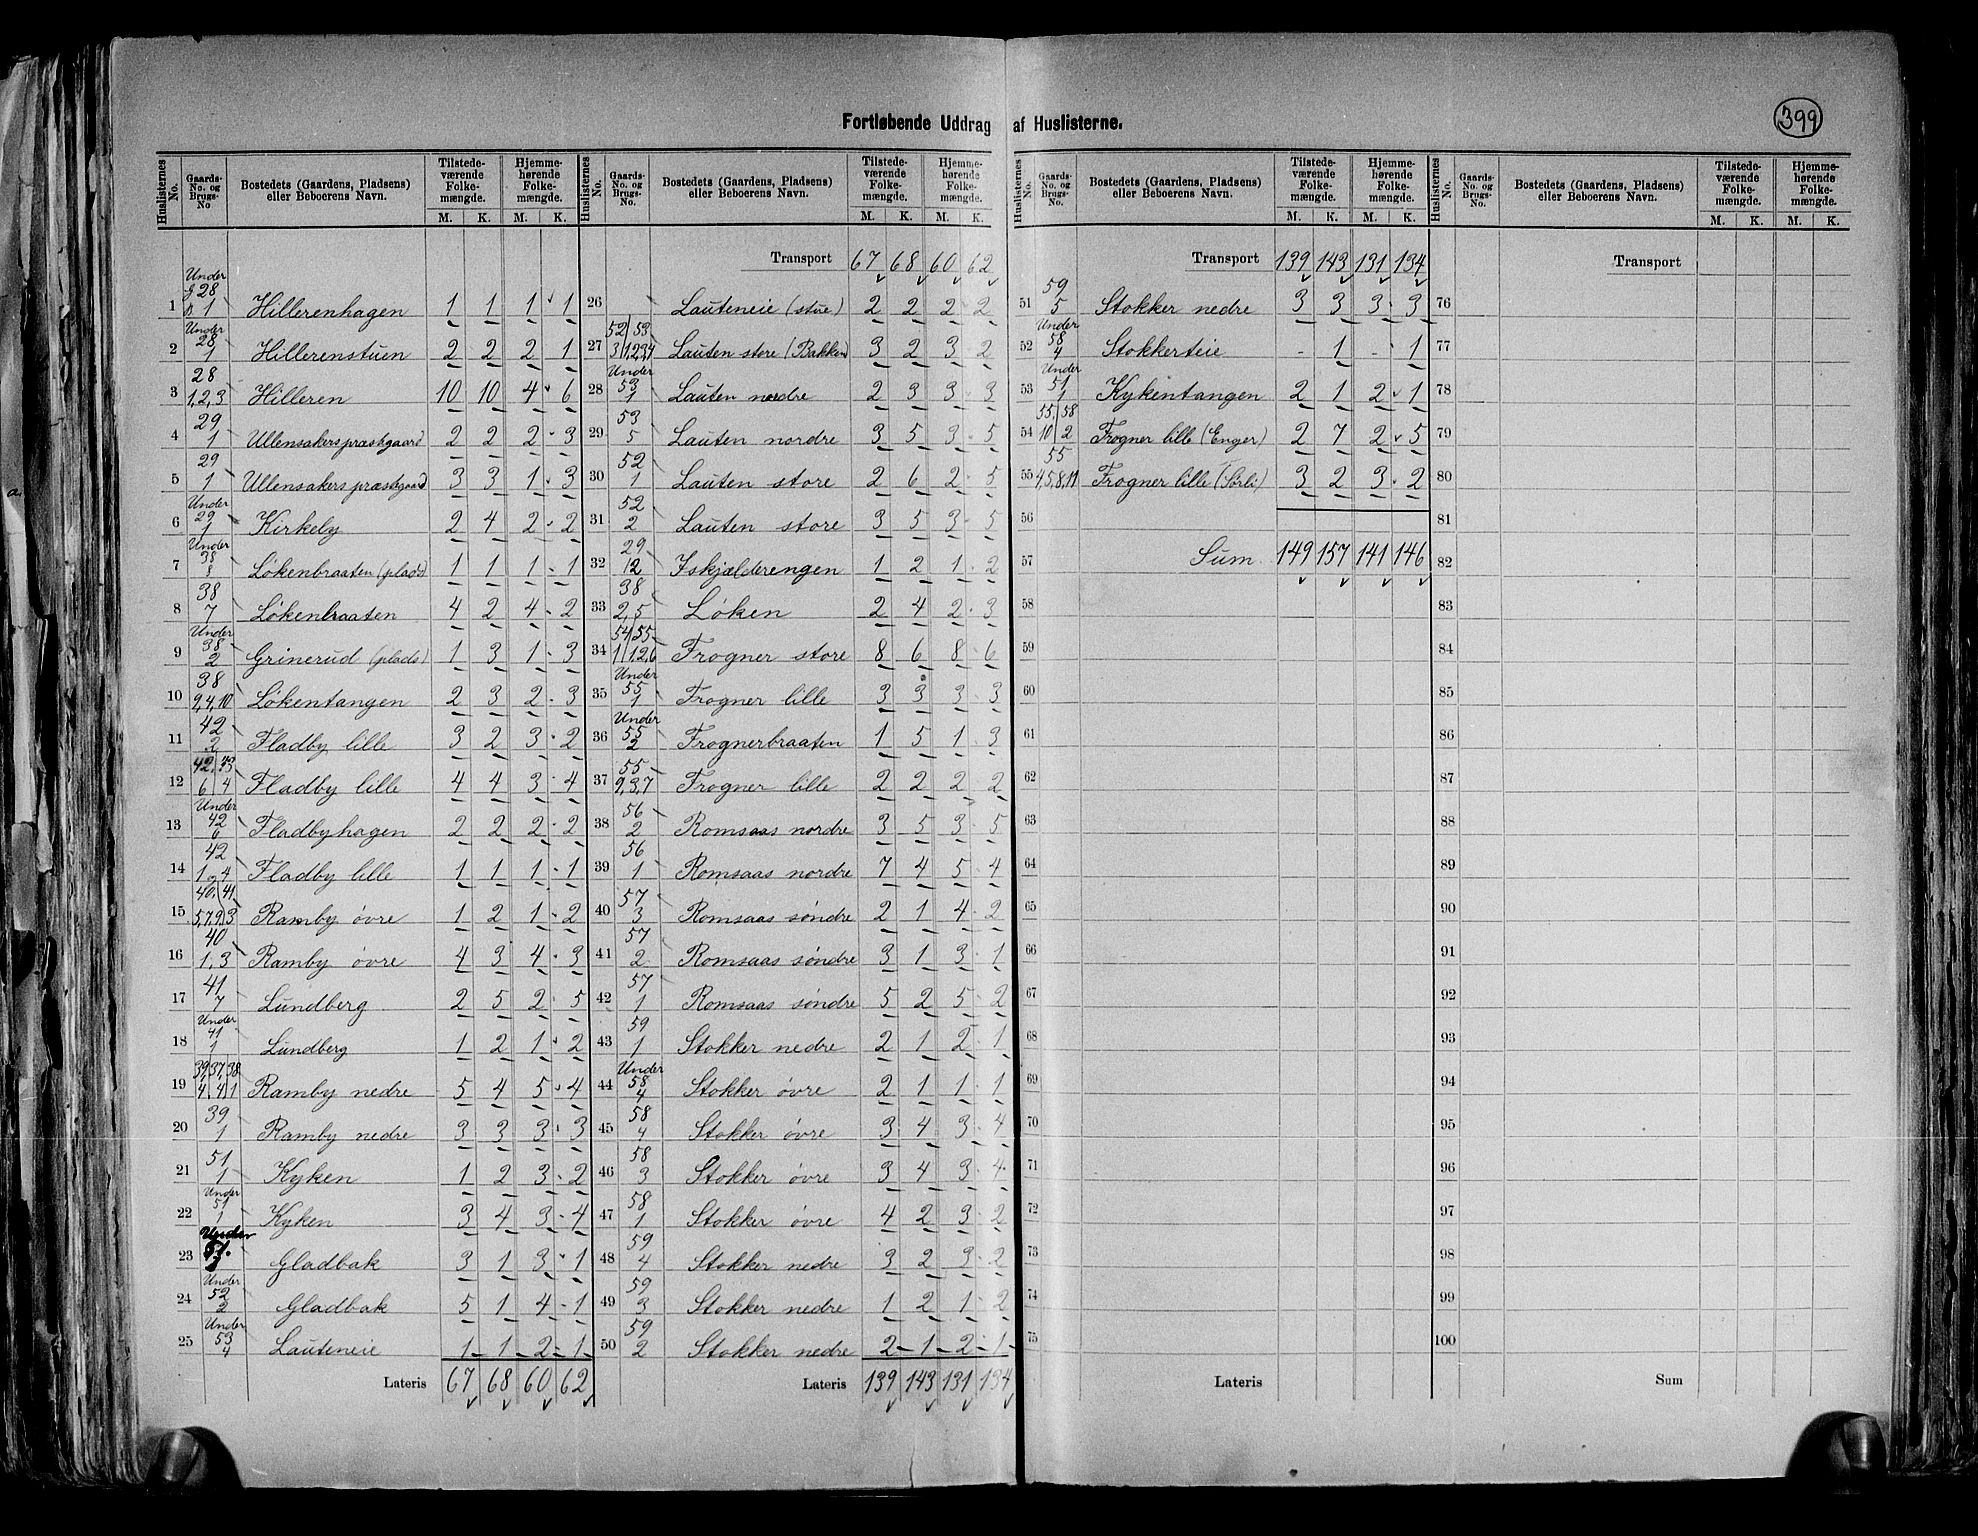 399
Fortløbende Uddrag af Huslisterne.
Huslisternes No. | Gaards-No. og Brugs-No | Bostedets (Gaardens, Pladsens) eller Beboerens Navn. | Tilstedeværende Folkemængde. M. K. | Hjemmehørende Folkemængde. M. K.
1 | Under g 28 b 1 | Hillerenhagen | 1 | 1 | 1 | 1
2 | Under 28 1 | Hillerenstuen | 2 | 2 | 2 | 1
3 | 28 1,2,3 | Hilleren | 10 | 10 | 4 | 6
4 | 29 1 | Ullensakers præstgaard | 2 | 2 | 2 | 3
5 | 29 1 | Ullensakers præstegaard | 3 | 3 | 1 | 3
6 | Under 29 1 | Kirkeby | 2 | 4 | 2 | 2
7 | Under 38 | Løkenbraaten (plads) | 1 | 1 | 1 | 1
8 | 38 7 | Løkenbraaten | 4 | 2 | 4 | 2
9 | Under 38 2 | Grinerud (plads) | 1 | 3 | 1 | 3
10 | 38 9,4,10 | Løkentangen | 2 | 3 | 2 | 3
11 | 42 2 | Fladby lille | 3 | 2 | 3 | 2
12 | 42, 43 6 4 | Fladby lille | 4 | 4 | 3 | 4
13 | Under 42 6 | Fladbyhagen | 2 | 2 | 2 | 2
14 | 42 1 og 4 | Fladby lille | 1 | 1 | 1 | 1
15 | 40, 41 5,7,9,3 | Ramby øvre | 1 | 2 | 1 | 2
16 | 40 1,3 | Ramby øvre | 4 | 3 | 4 | 3
17 | 41 7 | Lundberg | 2 | 5 | 2 | 5
18 | Under 41 1 | Lundberg | 1 | 2 | 1 | 2
19 | 39,37,38 4,4,1 | Ramby nedre | 5 | 4 | 5 | 4
20 | 39 1 | Ramby nedre | 3 | 3 | 3 | 3
21 | 51 1 | Kyken | 1 | 2 | 3 | 2
22 | Under 51 1 | Kyken | 3 | 4 | 3 | 4
23 | Under 51. | Gladbak | 3 | 1 | 3 | 1
24 | Under 52 2 | Gladbak | 5 | 1 | 4 | 1
25 | Under 53 4 | Lauteneie | 1 | 1 | 2 | 1
Lateris | 67 | 68 | 60 | 62
Huslisternes No. | Gaards-No. og Brugs-No. | Bostedets (Gaardens, Pladsens) eller Beboerens Navn. | Tilstedeværende Folkemængde. M. K. | Hjemmehørende Folkemængde. M. K.
Transport | 67 | 68 | 60 | 62
26 | Lauteneie (store) | 2 | 2 | 2 | 2
27 | 52 53 3 1,2,3,4 | Lauten store (Bakken) | 3 | 2 | 3 | 2
28 | Under 53 1 | Lauten nordre | 2 | 3 | 3 | 3
29 | 53 5 | Lauten nordre | 3 | 5 | 3 | 5
30 | 52 1 | Lauten store | 2 | 6 | 2 | 5
31 | 52 2 | Lauten store | 3 | 5 | 3 | 5
32 | 29 12 | Iskjælderengen | 1 | 2 | 1 | 2
33 | 38 2,5 | Løken | 2 | 4 | 2 | 3
34 | 54 55 1 1,2,6 | Frogner store | 8 | 6 | 8 | 6
35 | Under 55 1 | Frogner lille | 3 | 3 | 3 | 3
36 | Under 55 2 | Frognerbraaten | 1 | 5 | 1 | 3
37 | 55 9,3,7 | Frogner lille | 2 | 2 | 2 | 2
38 | 56 2 | Romsaas nordre | 3 | 5 | 3 | 5
39 | 56 1 | Romsaas nordre | 7 | 4 | 5 | 4
40 | 57 3 | Romsaas søndre | 2 | 1 | 4 | 2
41 | 57 2 | Romsaas søndre | 3 | 1 | 3 | 1
42 | 57 1 | Romsaas søndre | 5 | 2 | 5 | 2
43 | 59 1 | Stokker nedre | 2 | 1 | 2 | 1
44 | Under 58 4 | Stokker øvre | 2 | 1 | 1 | 1
45 | 58 4 | Stokker øvre | 3 | 4 | 3 | 4
46 | 58 3 | Stokker øvre | 3 | 4 | 3 | 4
47 | 58 1 | Stokker øvre | 4 | 2 | 3 | 2
48 | 59 4 | Stokker nedre | 3 | 2 | 3 | 2
49 | 59 3 | Stokker nedre | 1 | 2 | 1 | 2
50 | 59 2 | Stokker nedre | 2 | 1 | 2 | 1
Lateris | 139 | 143 | 131 | 134
Huslisternes No. | Gaards-No. og Brugs-No. | Bostedets (Gaardens, Pladsens) eller Beboerens Navn. | Tilstedeværende Folkemængde. M. K. | Hjemmehørende Folkemængde. M. K.
Transport | 139 | 143 | 131 | 134
51 | 59 5 | Stokker nedre | 3 | 3 | 3 | 3
52 | Under 58 4 | Stokkerteie | - | 1 | - | 1
53 | Under 51 1 | Kykentangen | 2 | 1 | 2 | 1
54 | 55, 58 10 2 | Frogner lille (Enger) | 2 | 7 | 2 | 5
55 | 55 4,5,8,11 | Frogner lille (Sørli) | 3 | 2 | 3 | 2
56
57 | Sum | 149 | 157 | 141 | 146
58
59
60
61
62
63
64
65
66
67
68
69
70
71
72
73
74
75
Lateris
Huslisternes No. | Gaards-No. og Brugs-No. | Bostedets (Gaardens, Pladsens) eller Beboerens Navn. | Tilstedeværende Folkemængde. M. K. | Hjemmehørende Folkemængde. M. K.
Transport
76
77
78
79
80
81
82
83
84
85
86
87
88
89
90
91
92
93
94
95
96
97
98
99
100
Sum